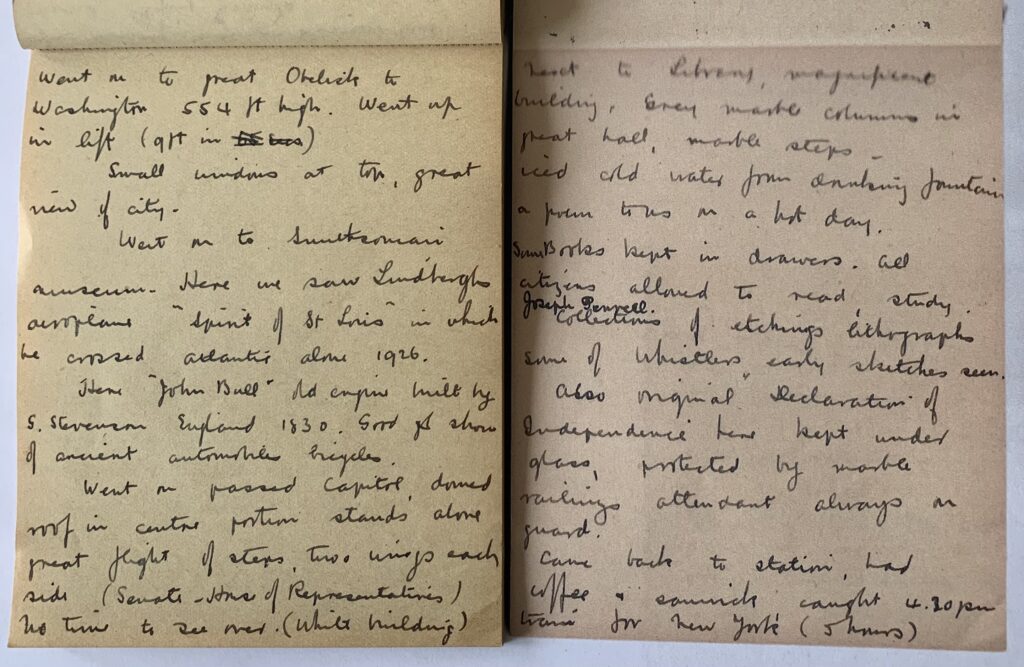 Went on to great Obelisk to
Washington 554 ft high. Went up
in lift (9ft in
Small windows at top, great
view of city.
Went on to Smithsonian
museum. Here we saw Lindberghs
aeroplane "Spirit of St Louis" in which
he crossed atlantic alone 1926.
Here "John Bull" old engine built by
S. Stevenson England 1830. Good show
of ancient automobiles bicycles.
Went on passed Capitol, domed
roof in centre portion stands alone
great flight of steps, two wings each
side (Senate - House of Representatives)
No time to see over. (White building)
next to Library, magnificent
building, Grey marble columns in
great hall, marble steps -
iced cold water from drinking fountain
a poem to us on a hot day.
Some Books kept in drawers. All
citizens allowed to read, study.
Joseph Pennell.
Collections of etchings lithographs
some of Whistlers early sketches seen.
Also original "Declaration of
Independence here kept under
glass, protected by marble
railings attendant always on
guard.
Came back to station, had
coffee & caught 4.30 pm
train for New York (5 hours)